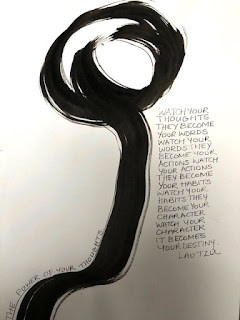 WATCH YOUR
THOUGHTS
THEY BECOME
YOUR WORDS
WATCH YOUR
WORDS THEY
BECOME YOUR
ACTIONS WATCH
YOUR ACTIONS
THEY BECOME
YOUR HABITS
WATCH YOUR
HABITS THEY
BECOME YOUR
CHARACTER
WATCH YOUR
CHARACTER
IT BECOMES
YOUR DESTINY.
LAO TZU
THE POWER OF YOUR THOUGHTS